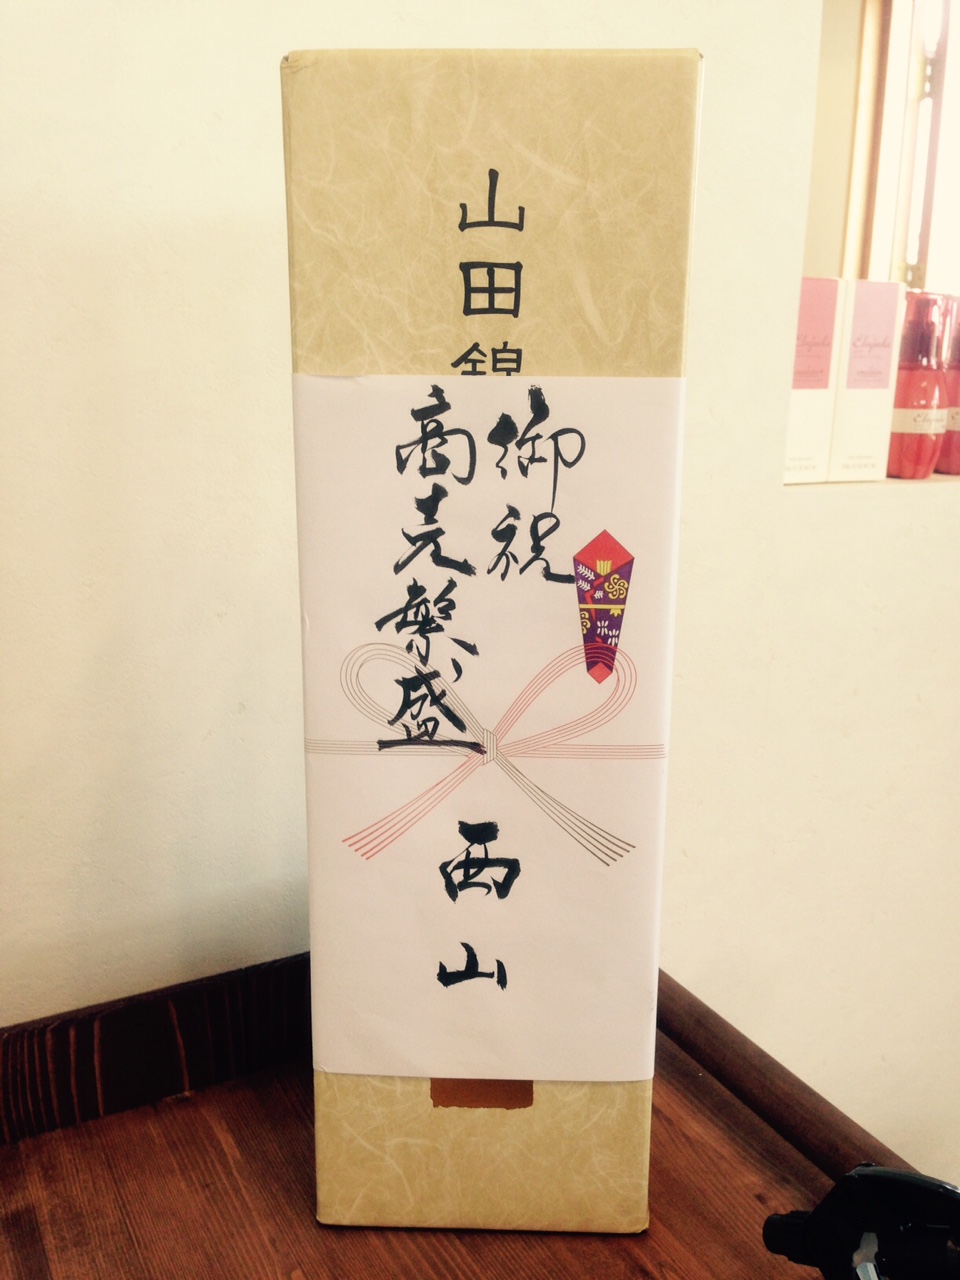 山田錦
御祝
商売繁盛
西山